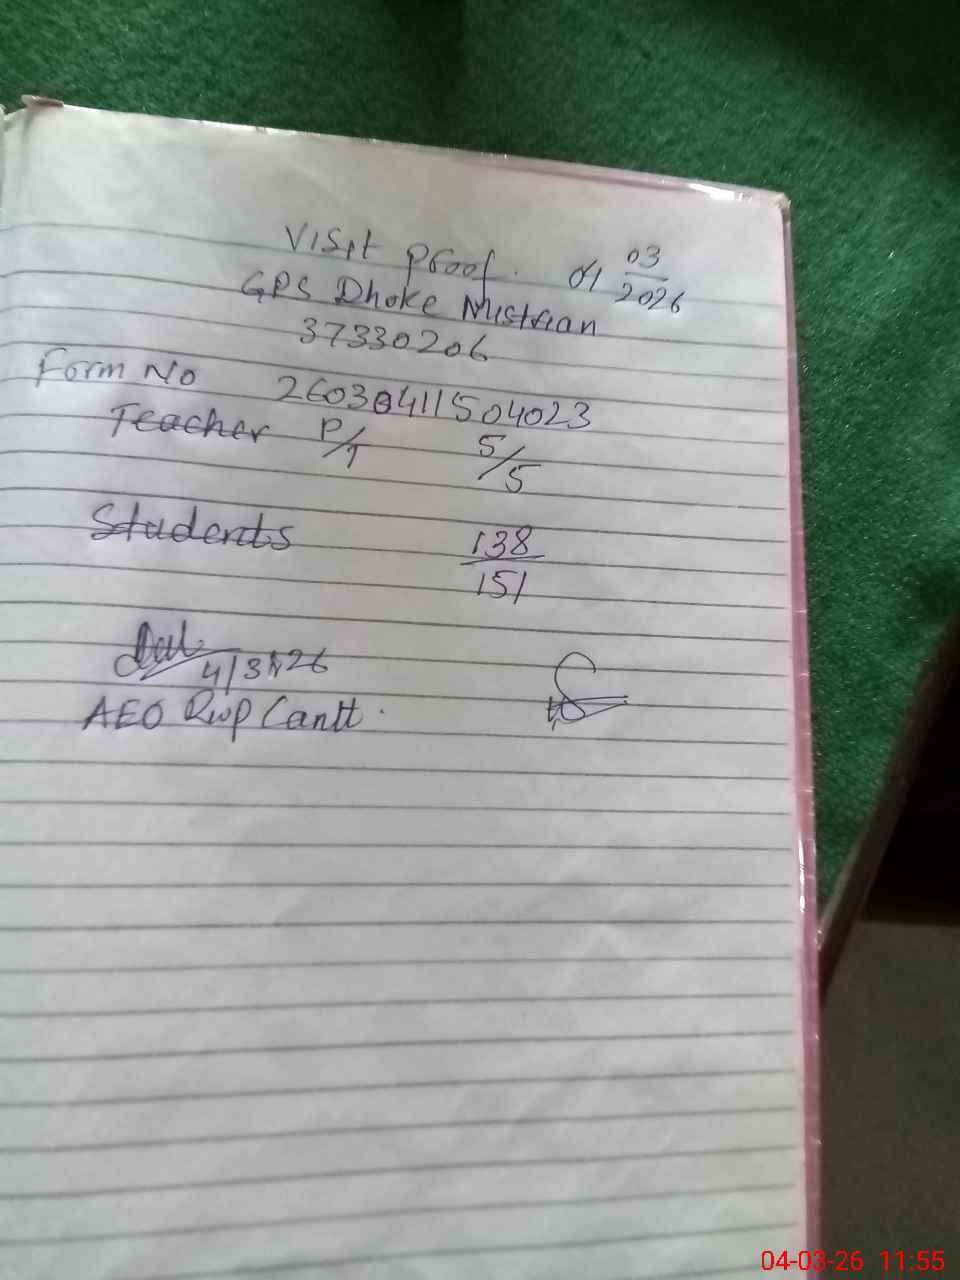 Visit Proof. 04 03/2026
GPS Dhoke Mistrian
37330206
Form No 26030411504023
Teacher P/T 5/5
Students 138/151
4/3/26
AEO Rwp Cantt.
04-03-26 11:55